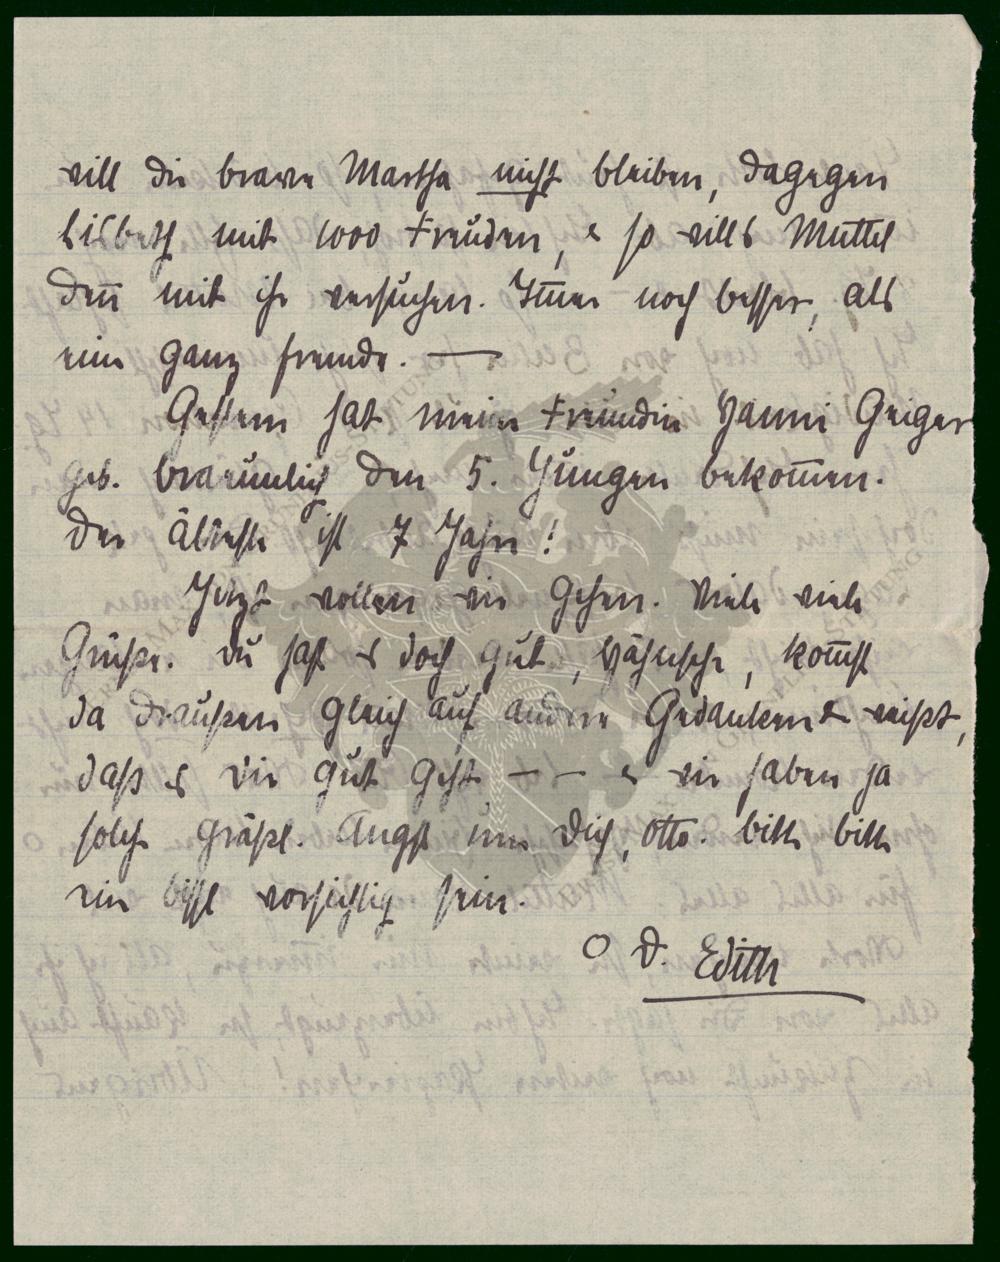 will die brave Martha nicht bleiben, dagegen
Lisbeth mit 1000 Freuden, & so will's Muttel
den̄ mit ihr versuchen. Im̄er noch besser, als
eine ganz fremde. —
Gestern hat meine Freundin Hanni Geiger
geb. Bräunlich den 5. Jungen bekom̄en.
Der Älteste ist 7 Jahre!
Jetzt wollen wir gehen. Viele viele
Grüße. Du hast es doch gut, kom̄st
da draußen gleich auf andere Gedanken & weißt,
daß es dir gut geht — — & wir haben ja
solche gräßl. Angst um Dich, Otto. bitte bitte
ein bissl vorsichtig sein.
O D. Edith